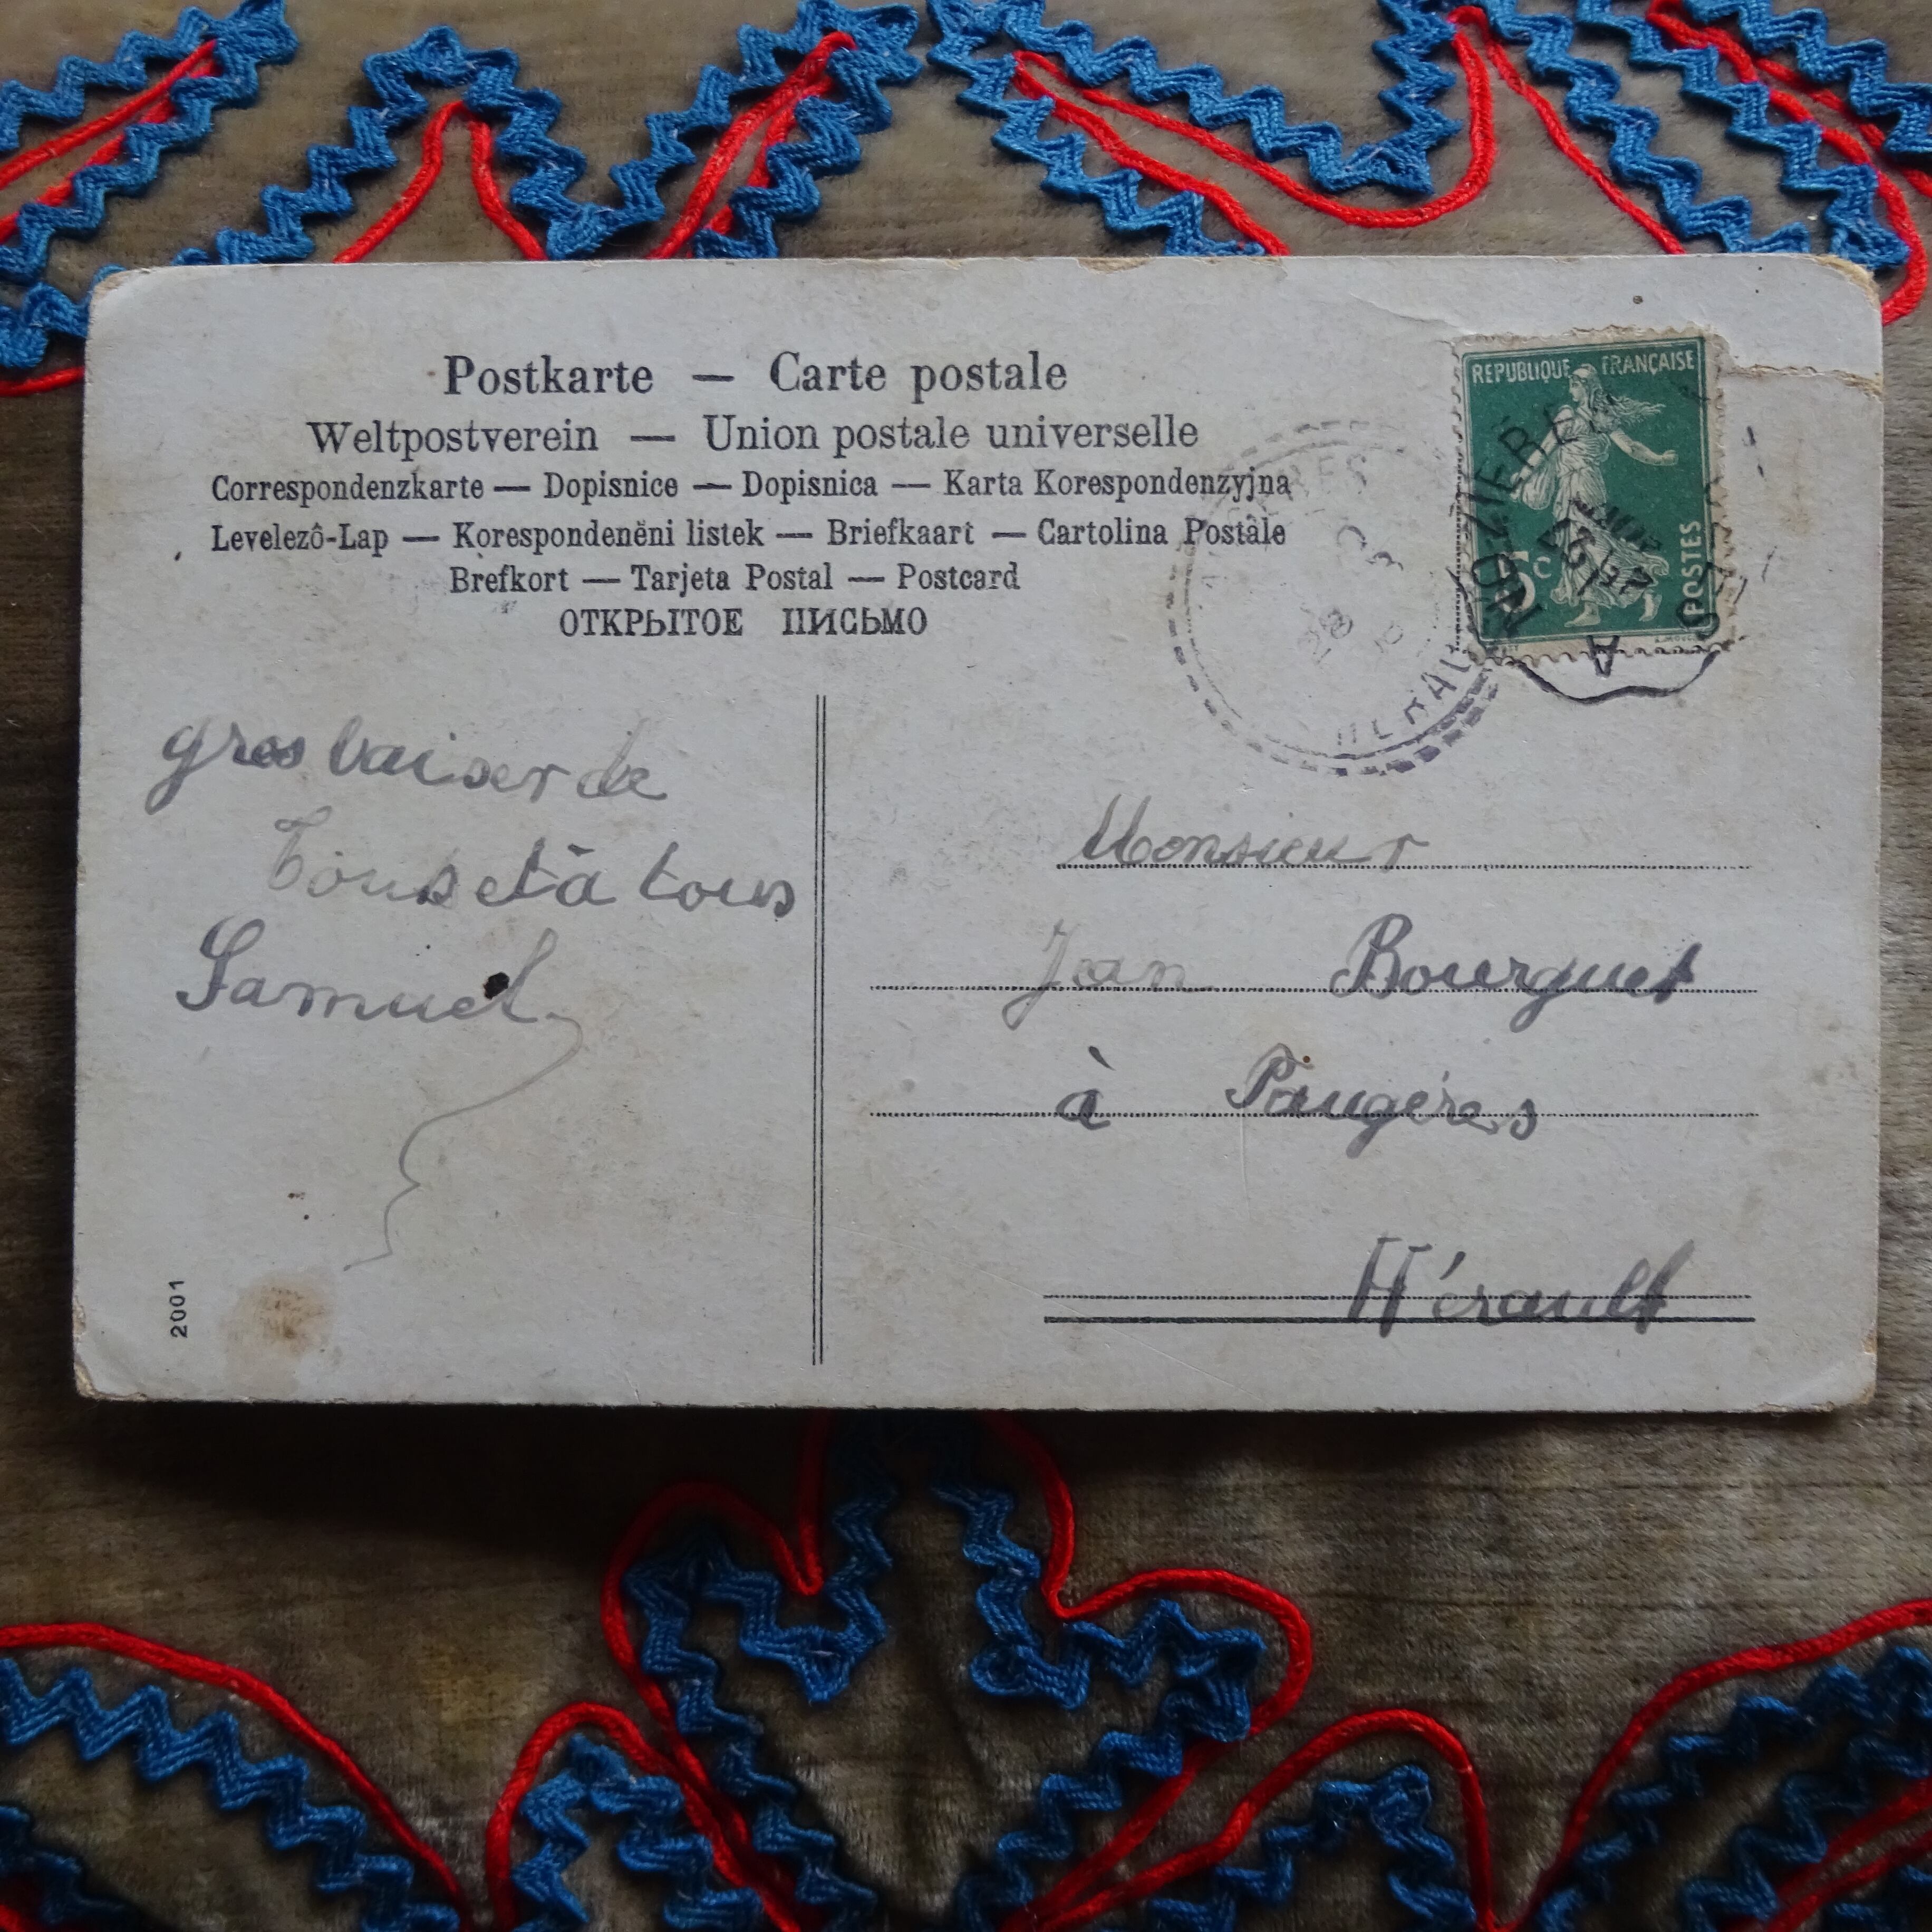 Postkarte — Carte postale
Weltpostverein — Union postale universelle
Correspondenzkarte — Dopisnice — Dopisnica — Karta Korespondenzyjna
Levelezô-Lap — Korespondenĕni listek — Briefkaart — Cartolina Postale
Brefkort — Tarjeta Postal — Postcard
ОТКРЫТОЕ ПИСЬМО
REPUBLIQUE FRANÇAISE
5c
POSTES
gros baiser de
Tous et à tous
Samuel
Monsieur
Jean Bourguet
à Paugères
Hérault
2001